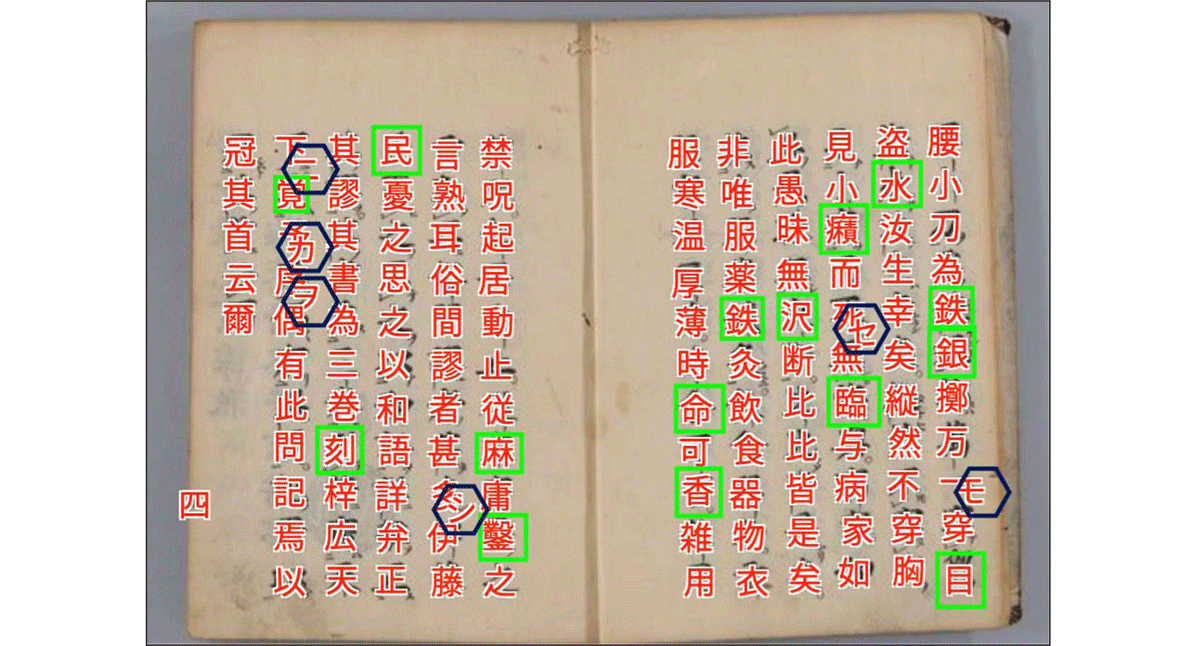 腰小刀為鉄銀擲万一モ穿目
盗水汝生幸矣縦然不穿胸
見小癪而死セ無臨与病家如
此愚昧無沢断比比皆是矣
非唯服薬鉄灸飲食器物衣
服寒温厚薄時命可香雑用
禁呪起居動止従麻庸鑿之
言熟耳俗間謬者甚多ン伊藤
民憂之思之以和語詳弁正
其謬其書為三巻刻梓広天
下ニ覚予カ居ラ偶有此問記焉以
冠其首云爾
四